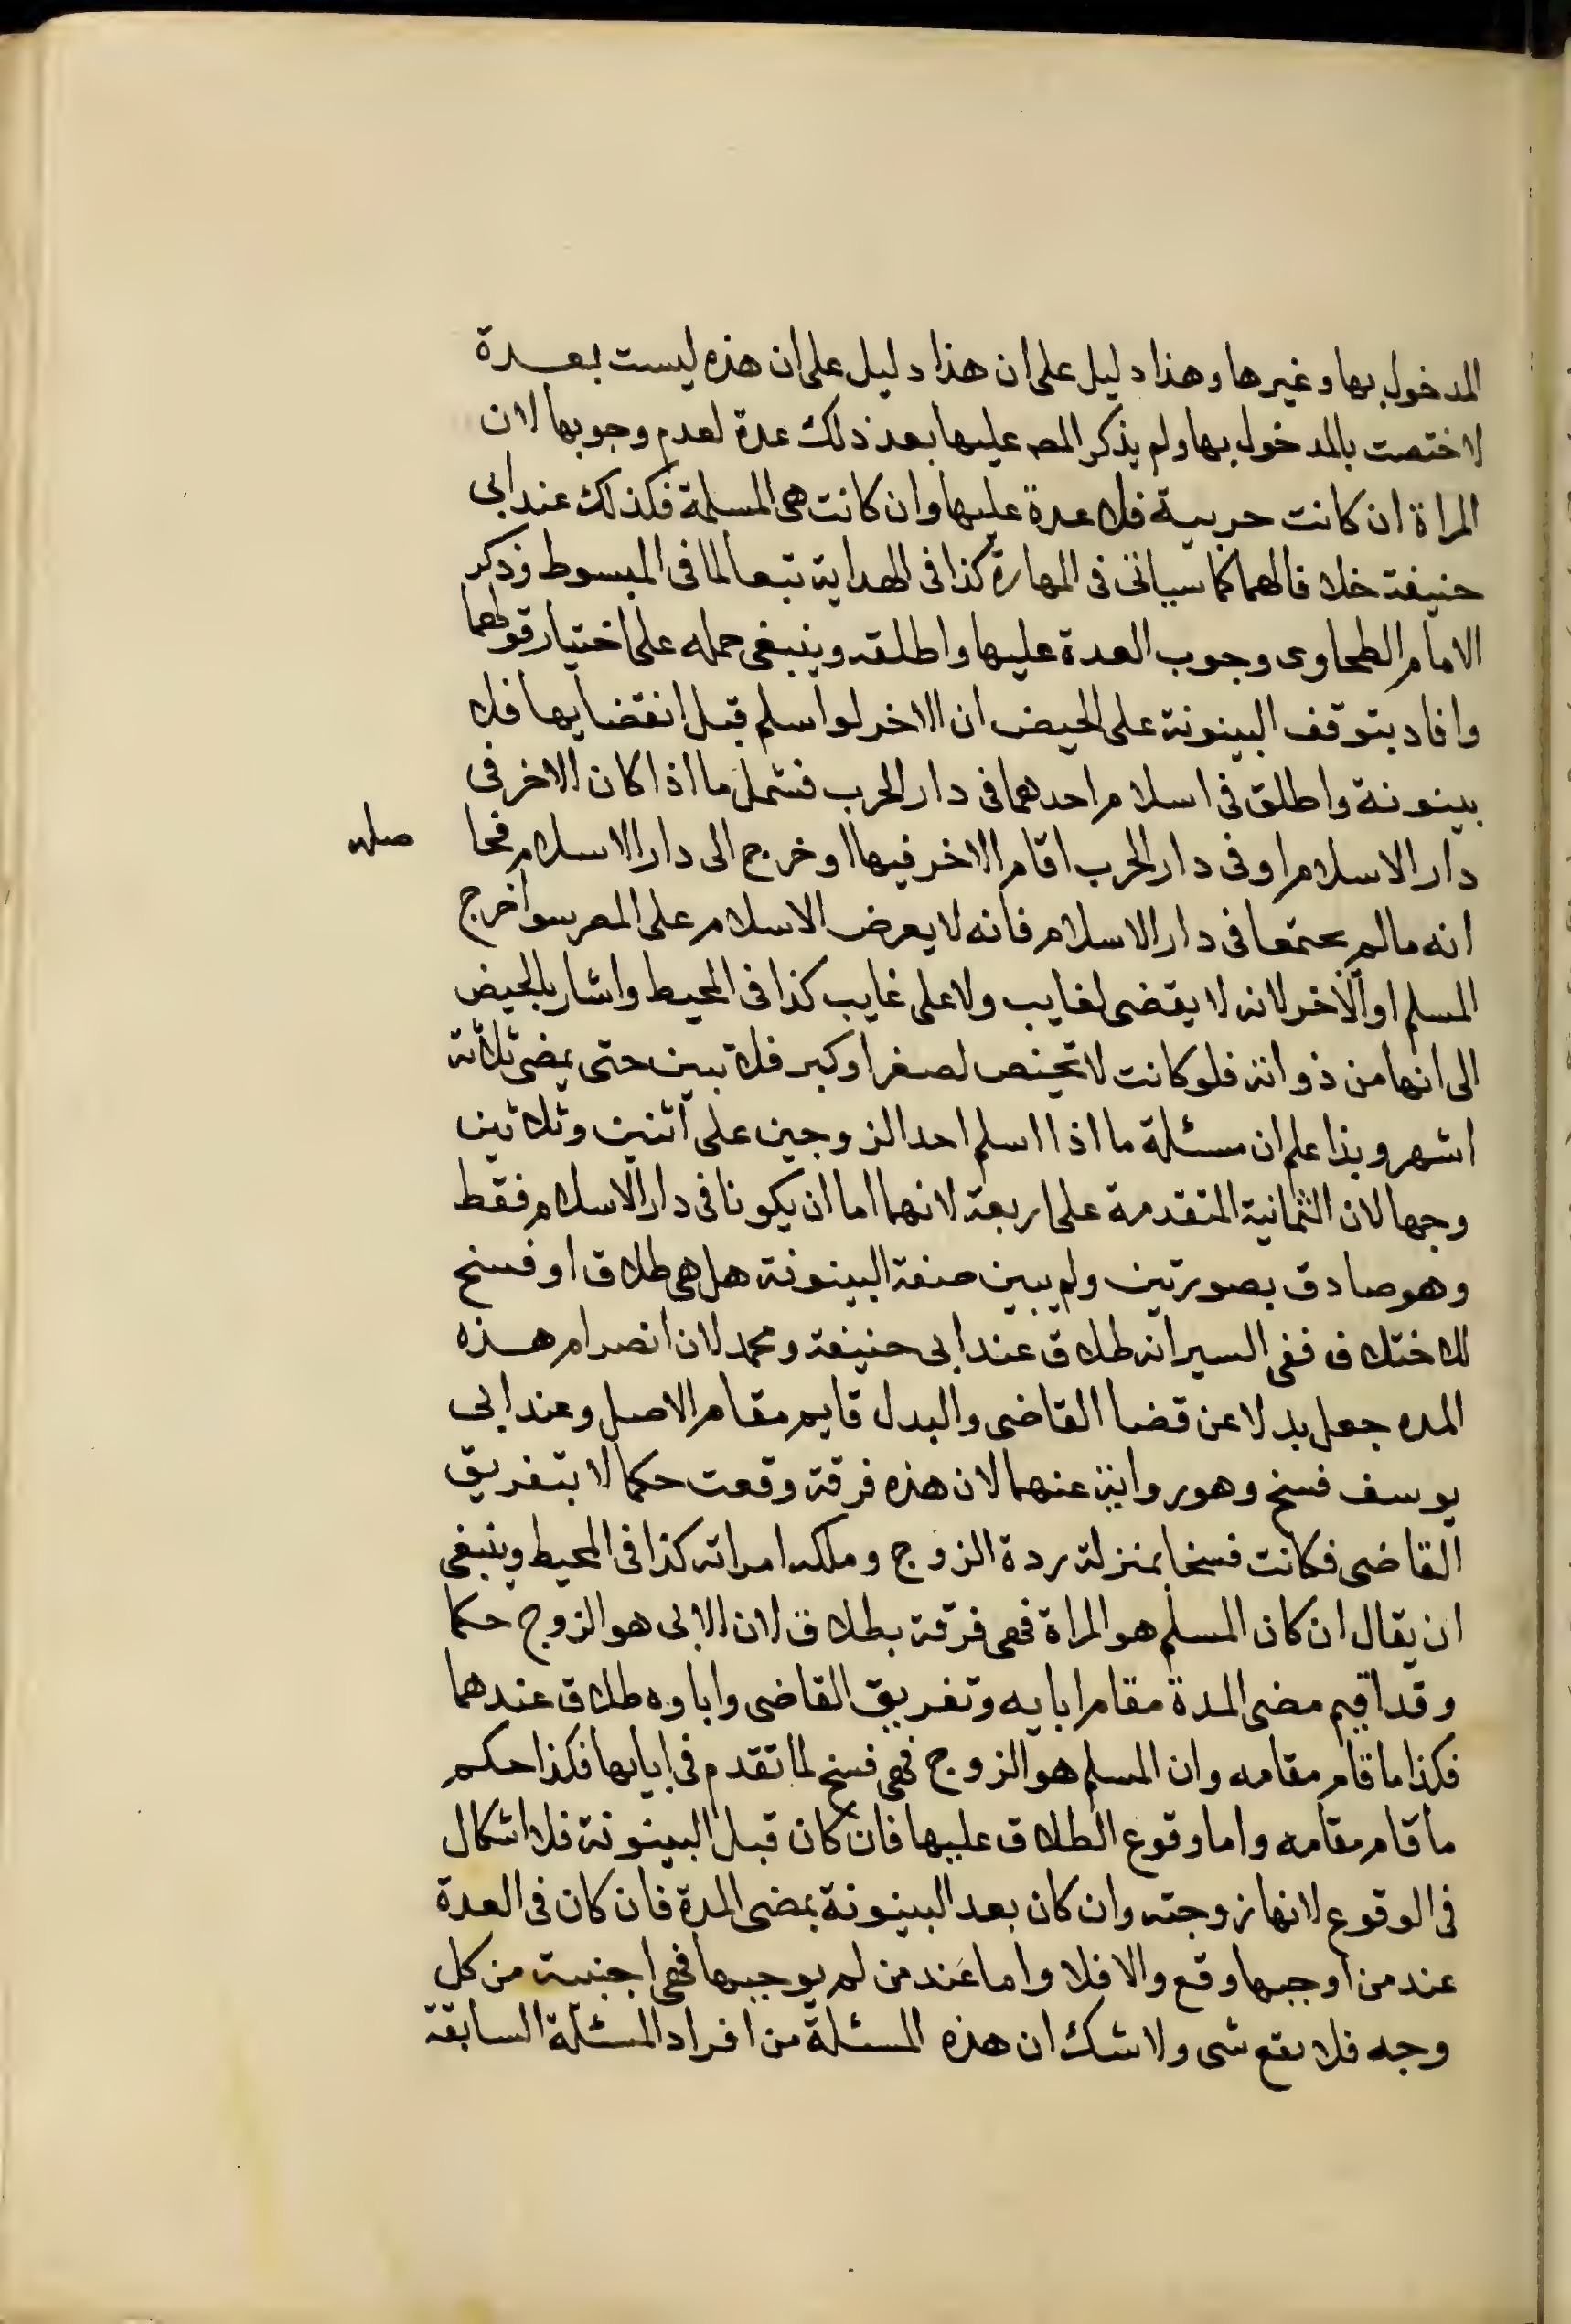 المدخول بها وغيرها وهذا دليل على ان هذا دليل على ان هذه ليست بعدة
لاختصت بالمدخول بها ولم يذكر المص عليها بعد ذلك عدة لعدم وجوبها لان
المراة ان كانت حربية فلا عدة عليها وان كانت هى المسلمة فكذلك عند ابى
حنيفة خلافا لهما كما سياتى فى المهاره كذا فى الهداية تبعا لما فى المبسوط وذكر
الامام الطحاوى وجوب العدة عليها واطلقه وينبغى حمله على اختيار قولهما
وافاد بتوقف البينونة على الحيض ان الاخر لو اسلم قبل انقضايها فلا
بينونة واطلق فى اسلام احدهما فى دار الحرب فشمل ما اذا كان الاخر فى
دار الاسلام او فى دار الحرب اقام الاخر فيها او خرج الى دار الاسلام فحا صله
انه مالم يجتمعا فى دار الاسلام فانه لا يعرض الاسلام على المصر سوا خرج
المسلم او الاخر لانه لا يقضى لغايب ولا على غايب كذا فى المحيط واشار بالحيض
الى انها من ذواته فلو كانت لا تحيض لصغر او كبر فلا تبين حتى يمضى ثلاثة
اشهر وبذا علم ان مسئلة ما اذا اسلم احد الزوجين على اثنين وثلاثين
وجها لان الثمانية المتقدمة على اربعة لانهما اما ان يكونا فى دار الاسلام فقط
وهو صادق بصورتين ولم يبين صفة البينونة هل هى طلاق او فسخ
للاختلاف ففى السير انه طلاق عند ابى حنيفة ومحمد لان انصرام هذه
المده جعل بدلا عن قضا القاضى والبدل قايم مقام الاصل وعند ابى
يوسف فسخ وهو رواية عنهما لان هذه فرقة وقعت حكما لا بتفريق
القاضى فكانت فسخا بمنزلة ردة الزوج وملكه امراته كذا فى المحيط وينبغى
ان يقال ان كان المسلم هو المراة فهى فرقة بطلاق لان الابى هو الزوج حكما
وقد اقيم مضى المدة مقام ابايه وتفريق القاضى واباوه طلاق عندهما
فكذا ما قام مقامه وان المسلم هو الزوج فهى فسخ لما تقدم فى ابايها فكذا حكم
ما قام مقامه واما وقوع الطلاق عليها فان كان قبل البينونة فلا اشكال
فى الوقوع لانها زوجته وان كان بعد البينونة بمضى المدة فان كان فى العدة
عند من اوجبها وقع والا فلا واما عند من لم يوجبها فهى اجنبية من كل
وجه فلا يقع شى ولا شك ان هذه المسئلة من افراد المسئلة السابقة